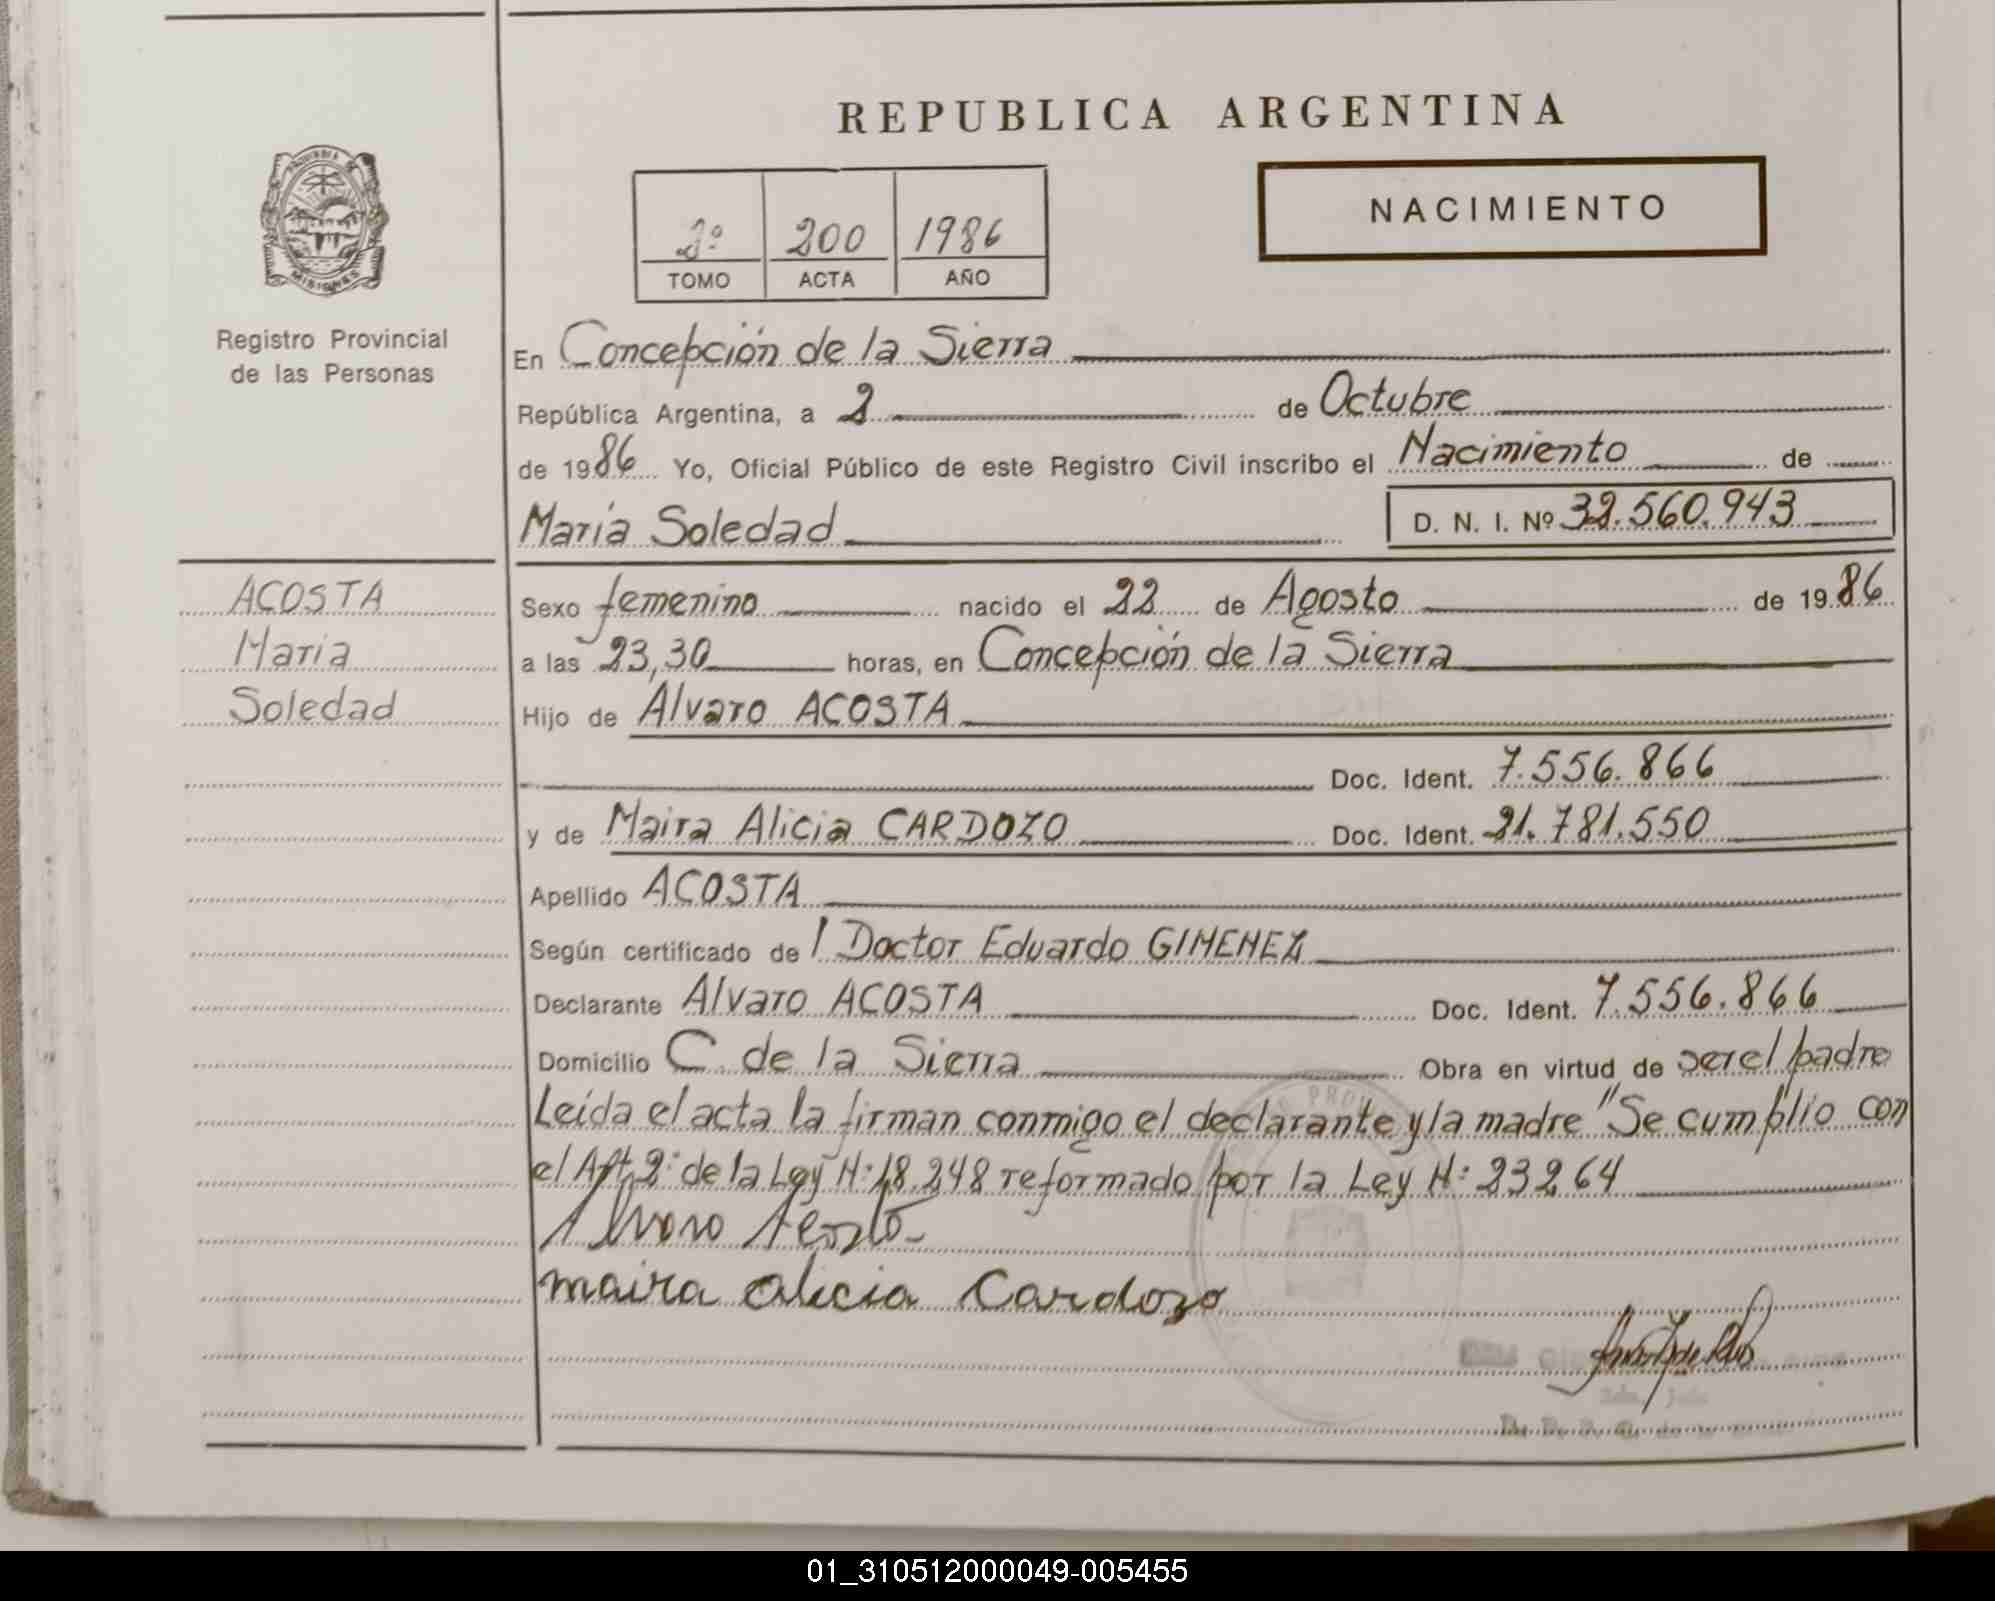 REPUBLICA ARGENTINA
NACIMIENTO
2º 200 1986
TOMO ACTA AÑO
PROVINCIA DE
MISIONES
Registro Provincial
de las Personas
En Concepción de la Sierra
República Argentina, a 2 de Octubre
de 1986 Yo, Oficial Público de este Registro Civil inscribo el Nacimiento de
María Soledad D. N. I. Nº 32.560.943
ACOSTA
Maria
Soledad
Sexo femenino nacido el 22 de Agosto de 1986
a las 23,30 horas, en Concepción de la Sierra
Hijo de Alvaro ACOSTA
Doc. Ident. 7.556.866
y de Maira Alicia CARDOZO Doc. Ident. 21.781.550
Apellido ACOSTA
Según certificado de l Doctor Eduardo GIMENEZ
Declarante Alvaro ACOSTA Doc. Ident. 7.556.866
Domicilio C. de la Sierra Obra en virtud de ser el padre
Leída el acta la firman conmigo el declarante y la madre "Se cumplio con
el Art. 2º de la Ley N: 18.248 reformado por la Ley N: 23264
Alvaro Acosta
maira alicia Cardozo
01_310512000049-005455